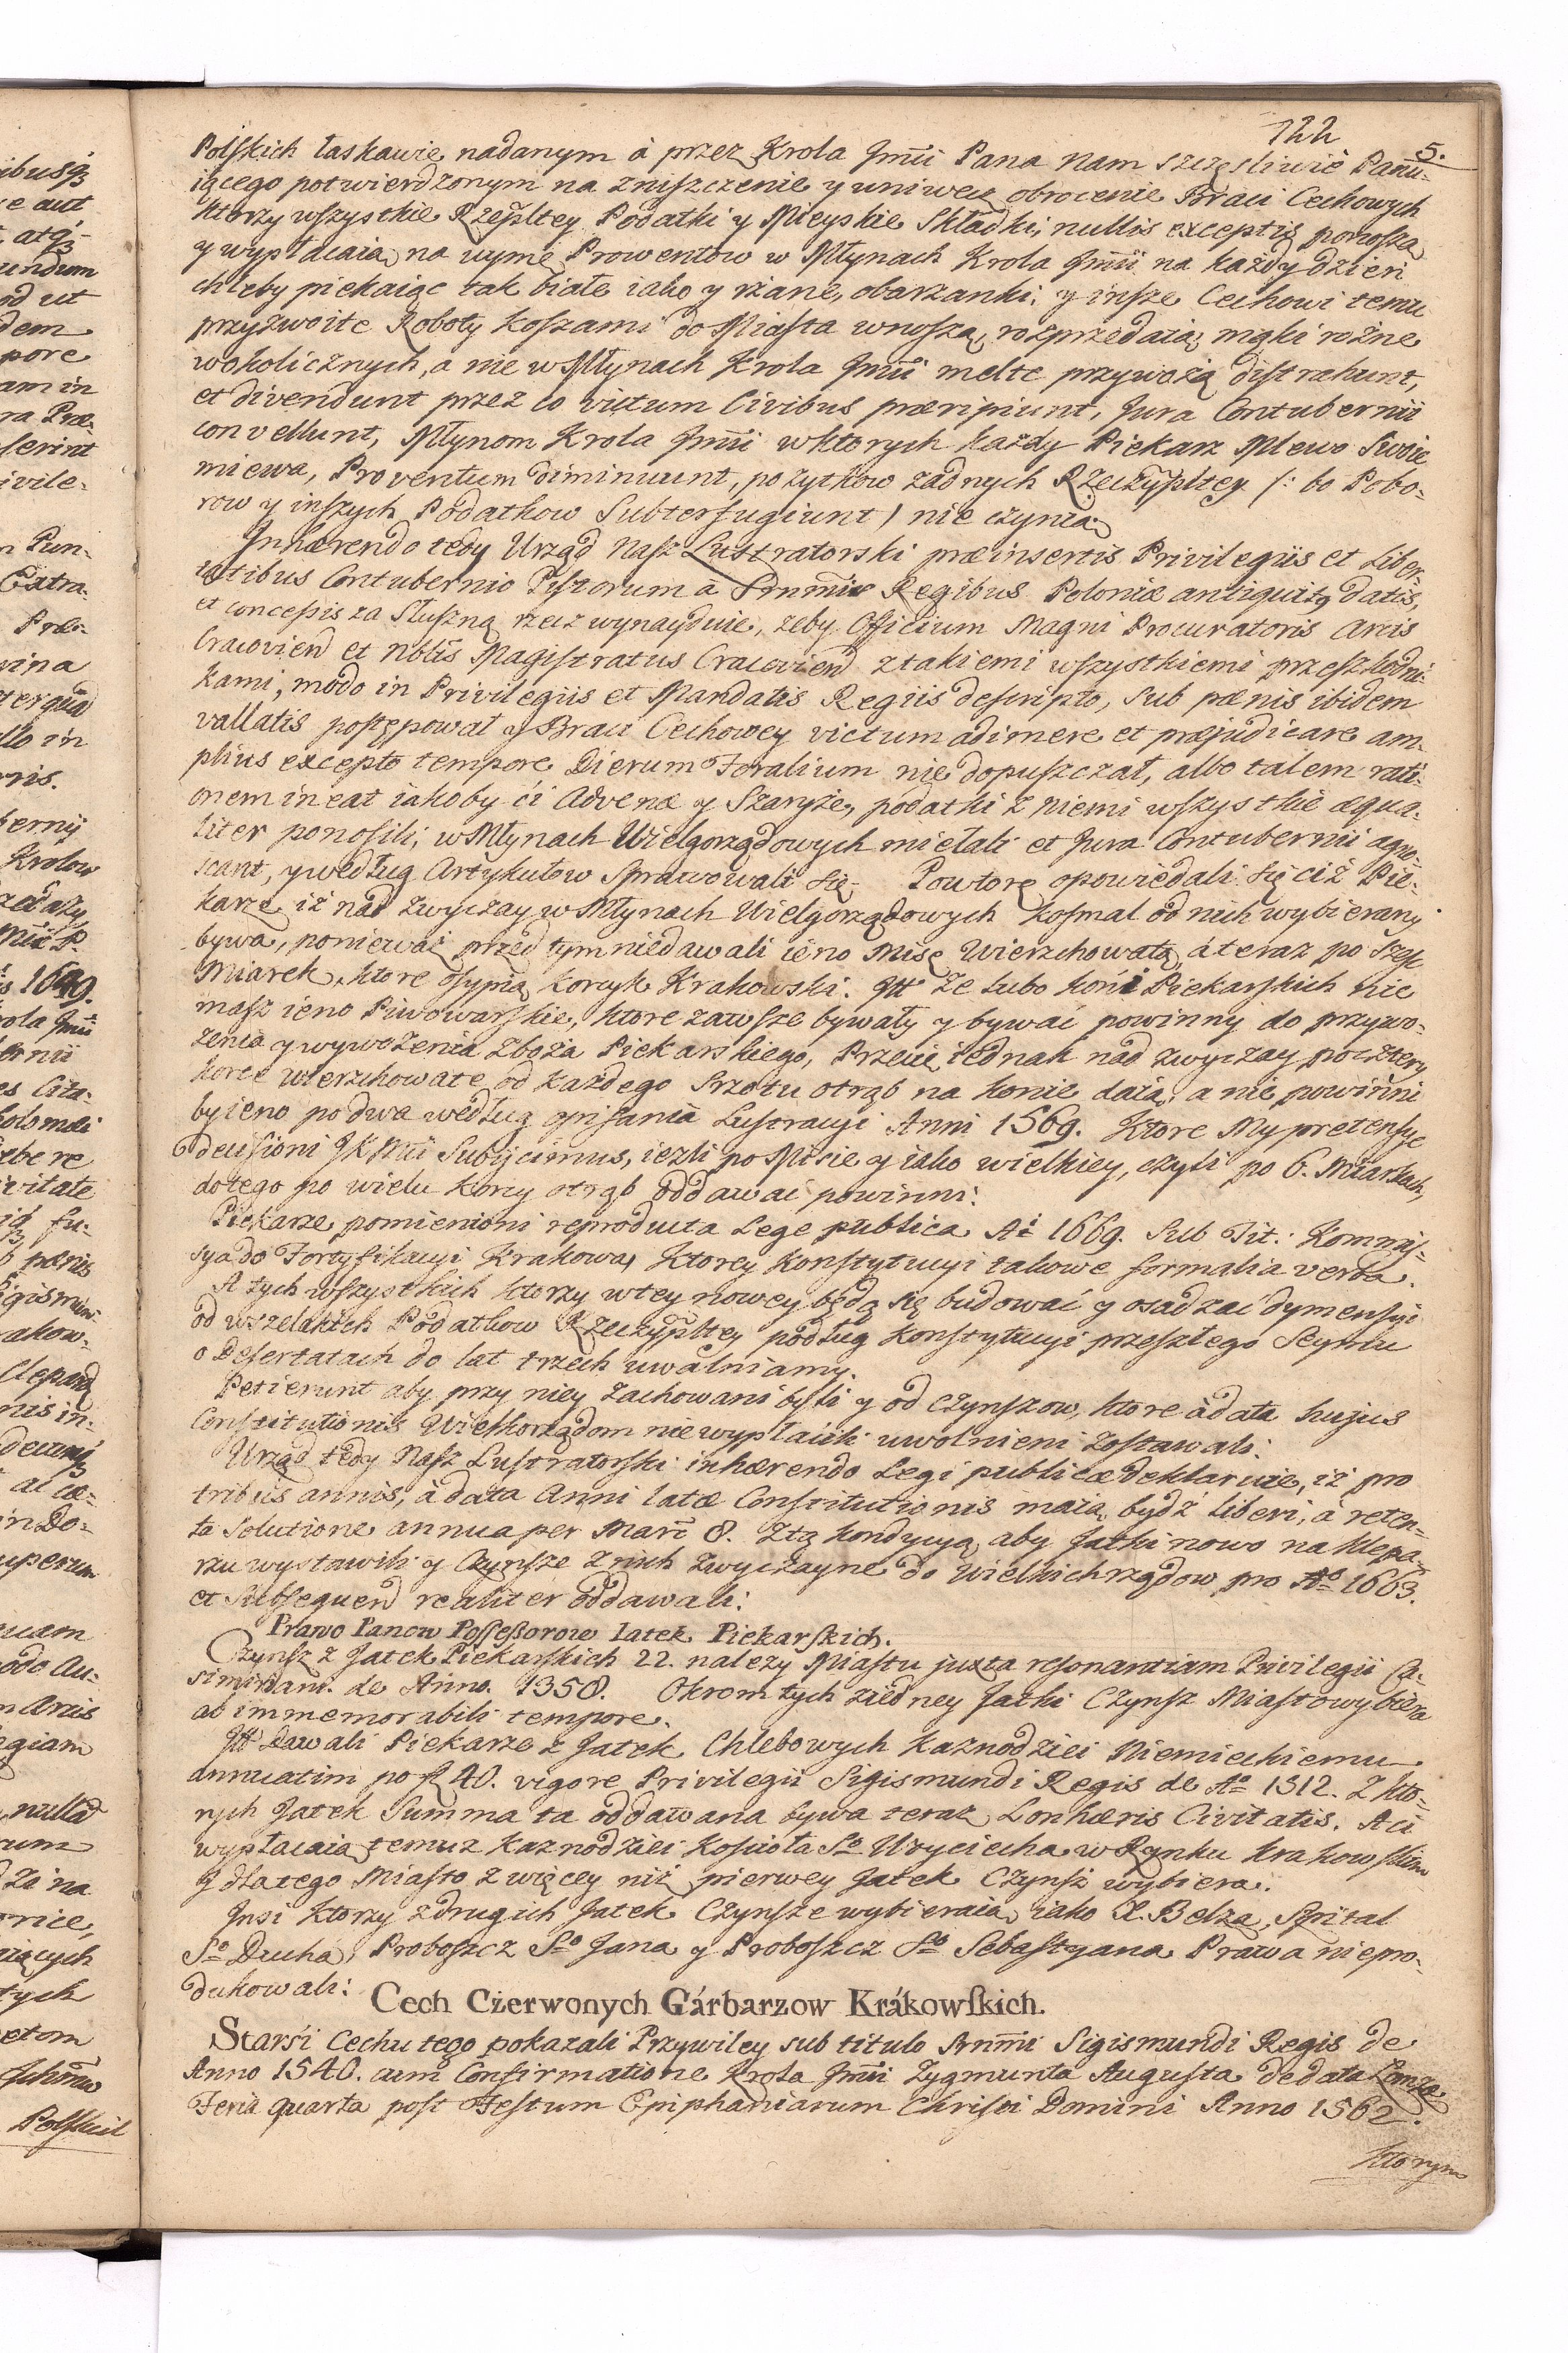 122
5.
Polskich łaskawie nadanym á przez Krola Jmći Pana Nam szczęsliwie Panu-
iącego potwierdzonym na zniszczenie y uniwecz obrocenie Braci Cechowych
ktorzy wszystkie Rzeczpltey Podatki y Mieyskie Składki, nullis exceptis ponoszą
y wypłacaią, na uymę Prowentow w Młynach Krola Jmći na każdy dzień
chleby piekaiąc tak białe iako y rżane, obarzanki, y insze Cechowi temu
przyzwoite Roboty koszami do Miasta wnoszą, rosprzedaią, mąki rożne
w okolicznych, a nie w Młynach Krola Jmći melte przywożą distrahunt,
et divendunt przez co victum Civibus præripiunt, Jura Contubernii
convellunt, Młynom Krola Jmći w ktorych każdy Piekarz Mlewo Swoie
miewa, Proventum diminuunt, pożytkow żadnych Rzeczypltey /: bo Pobo-
row y inszych Podatkow Subterfugiunt / nie czynią.
Inhærendo tedy Urząd Nasz Lustratorski præinsertis Privilegiis et Liber-
tatibus Contubernio Pistorum a Srnmis Regibus Poloniæ antiquitq datis,
et concessis za Słuszną rzecz wynayduie, żeby Officium Magni Procuratoris Arcis
Cracovien et Nobis Magistratus Cracovien z takiemi wszystkiemi przeszkodni-
kami, modo in Privilegiis et Mandatis Regiis descripto, sub pænis ibidem
vallatis postępował y Braci Cechowey victum adimere et præjudicare am-
plius excepto tempore Dierum Foralium nie dopuszczał, albo talem rati-
onem ineat iakoby ci Advenæ y Szarzyże, podatki z niemi wszystkie æqua-
liter ponosili, w Młynach Wielgorządowych mietali et Jura Contubernii agno-
scant, y według Artykułow Sprawowali się. Powtore opowiedali się ciż Pie-
karze iż nad zwyczay w Młynach Wielgorządowych kosmal od nich wybierany
bywa, ponieważ przed tym niedawali ieno Misę Wierzchowatą, á teraz po Szesc
Miarek, ktore osypią korczyk Krakowski. Itt Ze lubo koni Piekarskich nie
masz ieno Piwowarskie, ktore zawsze bywały y bywać powinny do przywo-
żenia y wywożenia Zboża Piekarskiego, Przecie iednak nad zwyczay po cztery
korce wierzchowate od każdego Srzotu otrąb na konie daią, a nie powinni
by ieno po dwa według opisania Lustracyi Anni 1569. Ktore My pretensye
decisioni JKMći Subijcimus, iezli po Misie y iako wielkiey, czyli po 6. Miarkach,
dotego po wielu korcy otrąb oddawać powinni.
Piekarze pomienioni reproducta Lege publica Ai 1669. Sub Tit: Kommis-
sya do Fortyfikacyi Krakowa, Ktorey Konstytucyi takowe formalia verba.
A tych wszystkich ktorzy w tey nowey będą się budować y osadzać dymensyi
od wszelakich Podatkow Rzeczypltey podług Konstytucyi przeszłego Seymu
o Desertatach do lat trzech uwalniamy.
Petierunt aby przy niey zachowani byli y od czynszow, ktore à data hujus
Constitutionis Wielkorządom nie wypłacili uwolnieni zostawali.
Urząd tedy Nasz Lustratorski inhærendo Legi publicæ deklaruie, iż pro
tribus annis, à data Anni latæ Constitutionis maią bydź liberi, à reten-
ta Solutione annua per Marc 8. Ztą kondycyą, aby Jatki nowo na Klepa-
rzu wystawili y Czynsze z nich zwyczayne do Wielkichrządow pro Ao 1663.
et Subsequen realiter oddawali.
Prawo Panow Possessorow Iatek Piekarskich.
Czynsz z Jatek Piekarskich 22. nalezy Miastu juxta resonantiam Privilegii Ca-
simiriani. de Anno. 1358. Okrom tych żiedney Jatki Czynsz Miasto wybiera
ab immemorabili tempore.
Itt Dawali Piekarze z Jatek Chlebowych Kaznodziei Niemieckiemu
annuatim po fl 40. vigore Privilegii Sigismundi Regis de Ao 1512. Z kto-
rych Jatek Summa ta oddawana bywa teraz Lonhæris Civitatis. A ci
wypłacaią temuz Kaznodziei Kościoła So Woyciecha w Rynku Krakowskim
y dlatego Miasto z więcey niż pierwey Jatek Czynsz wybiera.
Insi Ktorzy z drugich Jatek Czynsze wybieraią, iako X. Belza, Szpital
So Ducha, Proboszcz So Jana y Proboszcz So Sebastyana Prawa niepro-
dukowali.
Cech Czerwonych Gárbarzow Krákowskich.
Starśi Cechu tego pokazali Przywiley sub titulo Srnmi Sigismundi Regis de
Anno 1540. cum Confirmatione Krola Jmći Zygmunta Augusta de data Łomża
Feria quarta post Festum Epiphaniarum Christi Domini Anno 1562.
ktorym